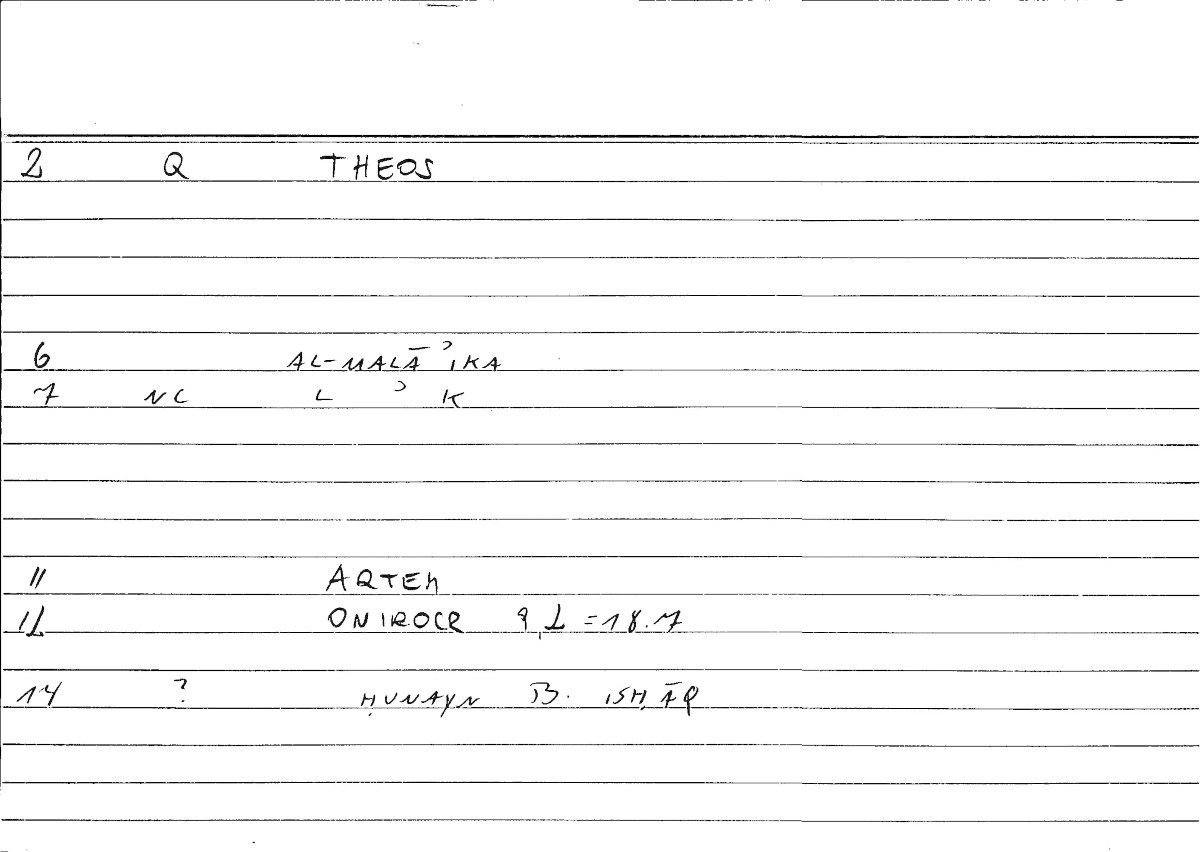 2 Q THEOS
6 AL-MALĀʾIKA
7 NC L ʾ K
11 ARTEM
12 ONIROCR 9,2 = 18.7
14 ? ḤUNAYN B. ISḤĀQ